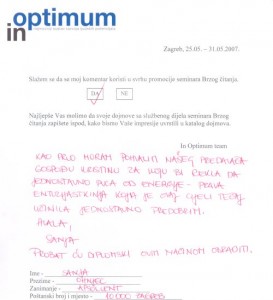 optimum
in
Zagreb, 25.05. – 31.05.2007.
Slažem se da se moj komentar koristi u svrhu promocije seminara Brzog čitanja.
DA NE
Najljepše Vas molimo da svoje dojmove sa službenog dijela seminara Brzog
čitanja zapišete ispod, kako bismo Vaše impresije uvrstili u katalog dojmova.
In Optimum team
KAO PRVO MORAM POHVALITI NAŠEG PREDAVAČA
GOSPOĐU KRISTINU ZA KOJU BI REKLA DA
JEDNOSTAVNO PUCA OD ENERGIJE - PRAVA
ENTUZIJASTKINJA KOJA JE OVAJ CIJELI TEČAJ
UČINILA JEDNOSTAVNO PREDOBRIM.
HVALA,
SANJA
PROBAT ĆU DIPLOMSKI OVIM NAČINOM OBRADITI.
Ime - SANJA
Prezime -
Zanimanje - APSOLVENT
Poštanski broj i mjesto - 10 000 ZAGREB